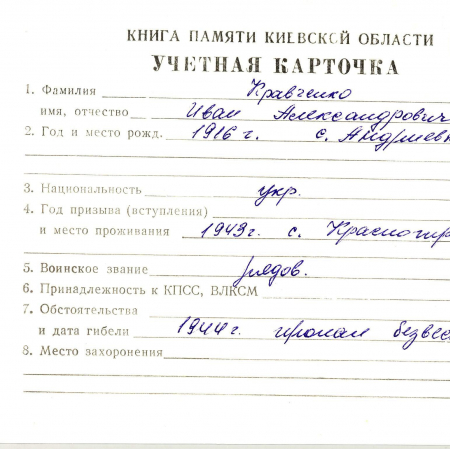 КНИГА ПАМЯТИ КИЕВСКОЙ ОБЛАСТИ
УЧЕТНАЯ КАРТОЧКА
1. Фамилия Кравченко
имя, отчество Иван Александрович
2. Год и место рожд. 1916 г. с. Андриевк
3. Национальность укр.
4. Год призыва (вступления)
и место проживания 1943г. с.
5. Воинское звание рядов.
6. Принадлежность к КПСС, ВЛКСМ
7. Обстоятельства
и дата гибели 1944г. пропал безвес
8. Место захоронения